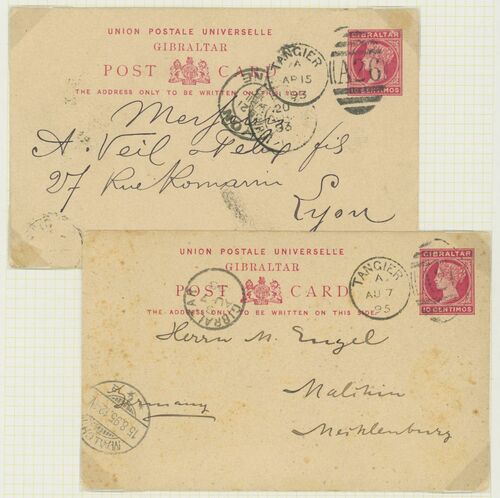 UNION POSTALE UNIVERSELLE
GIBRALTAR
POST CARD
THE ADDRESS ONLY TO BE WRITTEN ON THIS
TANGIER
A
AP 15
93
A26
GIBRALTAR
A. Veil
fils
27 Rue Romarin
Lyon
UNION POSTALE UNIVERSELLE
GIBRALTAR
POST CARD
THE ADDRESS ONLY TO BE WRITTEN ON THIS SIDE
GIBRALTAR
TANGIER
A
AU 7
95
GIBRALTAR
10 CENTIMOS
Herrn M. Engel
Malchin
Mecklenburg
Germany
MALCHIN
15.8.95.12-1